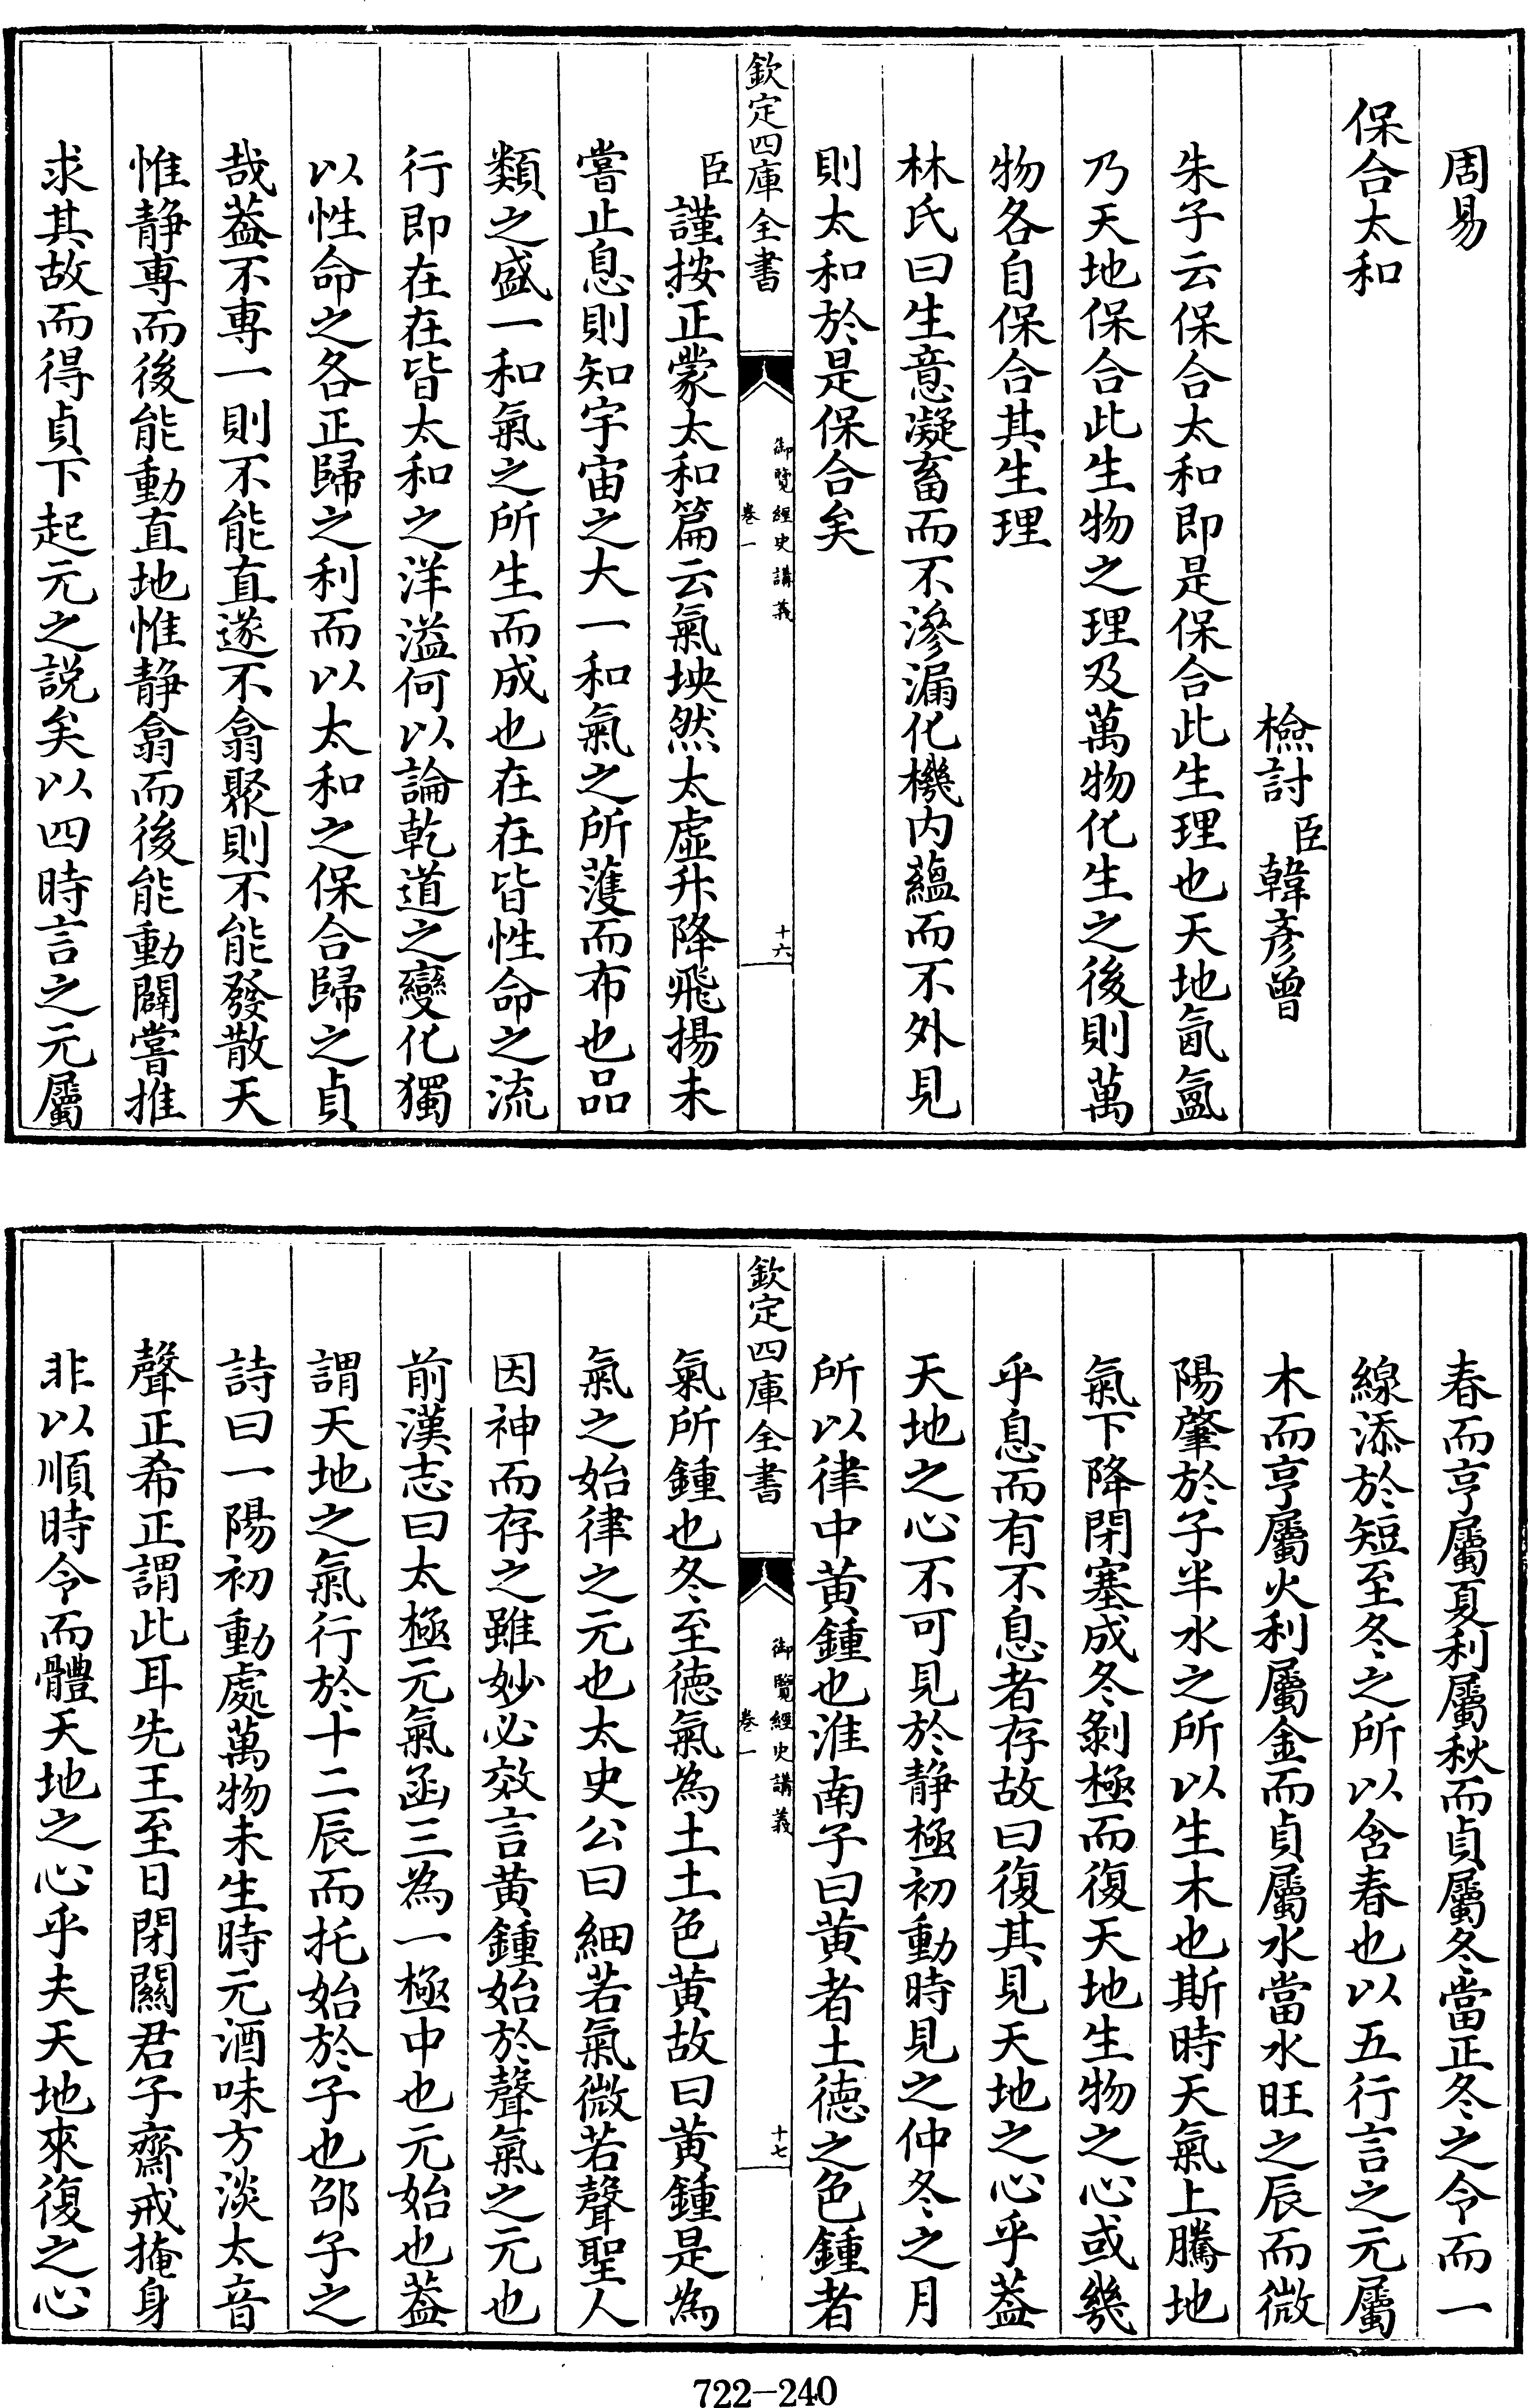 周易
保合太和
檢討臣韓彥曾
朱子云保合太和即是保合此生理也天地氤氲
乃天地保合此生物之理及萬物化生之後則萬
物各自保合其生理
林氏曰生意凝畜而不滲漏化機内蘊而不外見
則太和於是保合矣
欽定四庫全書
御覽經史講義
卷一
十六
臣謹按正蒙太和篇云氣坱然太虛升降飛揚未
嘗止息則知宇宙之大一和氣之所濩而布也品
類之盛一和氣之所生而成也在在皆性命之流
行即在在皆太和之洋溢何以論乾道之變化獨
以性命之各正歸之利而以太和之保合歸之貞
哉葢不專一則不能直遂不翕聚則不能發散天
惟静專而後能動直地惟静翕而後能動闢嘗推
求其故而得貞下起元之説矣以四時言之元屬
春而亨屬夏利屬秋而貞屬冬當正冬之令而一
線添於短至冬之所以含春也以五行言之元屬
木而亨屬火利屬金而貞屬水當水旺之辰而微
陽肇於子半水之所以生木也斯時天氣上騰地
氣下降閉塞成冬剝極而復天地生物之心或幾
乎息而有不息者存故曰復其見天地之心乎葢
天地之心不可見於静極初動時見之仲冬之月
所以律中黄鍾也淮南子曰黄者土德之色鍾者
欽定四庫全書
御覽經史講義
卷一
十七
氣所鍾也冬至德氣為土土色黄故曰黄鍾是為
氣之始律之元也太史公曰細若氣微若聲聖人
因神而存之雖妙必效言黄鍾始於聲氣之元也
前漢志曰太極元氣函三為一極中也元始也葢
謂天地之氣行於十二辰而托始於子也邵子之
詩曰一陽初動處萬物未生時元酒味方淡太音
聲正希正謂此耳先王至日閉關君子齋戒掩身
非以順時令而體天地之心乎夫天地來復之心
722-240